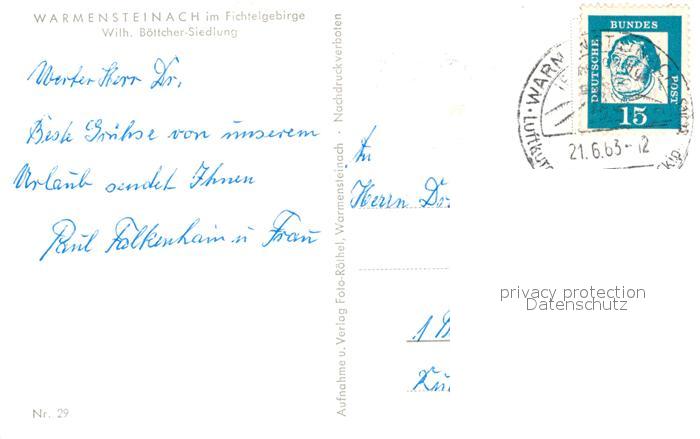 WARMENSTEINACH im Fichtelgebirge
Wilh. Böttcher-Siedlung
Werter Herr Dr,
Beste Grühse von unserem
Urlaub sendet Ihnen
Paul Falkenhain u Frau
Nr. 29
Aufnahme u. Verlag Foto-Röthel, Warmensteinach · Nachdruckverboten
An
Herrn Dr.
1 B
DEUTSCHE
BUNDES
POST
15
WARM
21.6.63-12
privacy protection
Datenschutz